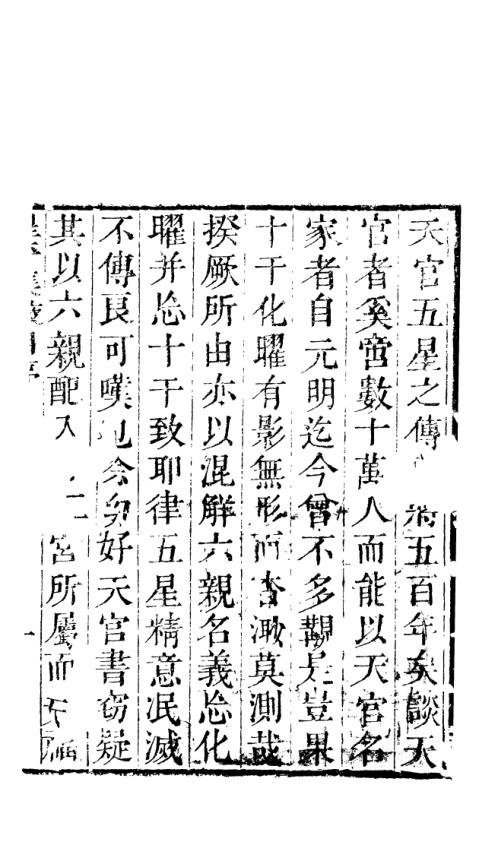 天官五星之傳五百年矣談天
官者奚啻數十萬人而能以天官名
家者自元明迄今曾不多觀是豈果
十干化曜有影無形而杳渺莫測哉
揆厥所由亦以混解六親名義忘化
曜并忘十干致耶律五星精意泯滅
不傳良可嘆也余幼好天官書竊疑
其以六親配入二宮所屬而